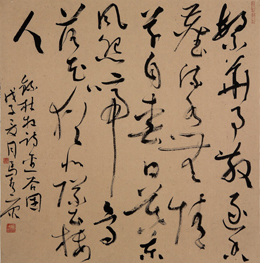 繁华事散逐香
尘流水无情
草自春日暮东
风怨啼鸟
落花犹似坠楼
人
杜牧诗金谷园
戊子